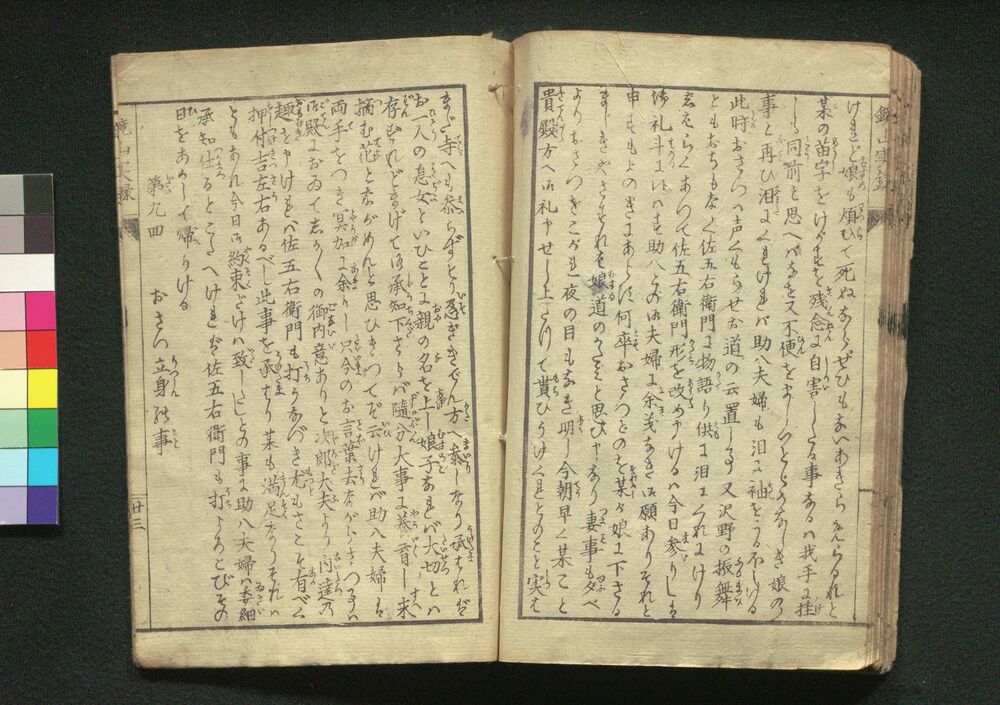 けれど娘も煩ひて死ねならぜひもないあきらめらるれど
某の苗字をけがすを残念に自害したる事なるハ我手に掛
しも同前と思へバなを又不便をましいとゞかなしき娘の
事と再び泪にくれけれバ助八夫婦も泪に袖をしぼりける
此時おさつハ声くもらせお道の云置し事又沢野の振舞
ともおちもなく佐五右衛門に物語り供に泪にくれにけり
しばらくあつて佐五右衛門形を改め申けるハ今日参りしハ
御礼斗にハはず助八どの御夫婦に余義なき御願ありそれと
申もものぎにあらず何卒おさつどのを某が娘に下さる
まじきやさすれバ娘道のためと思ひ申なり妻事も夕べ
よりおさつをこがれ夜の目もなき明し今朝早く某こと
貴殿方へ御礼申せし上さげて貰ひうけくれとのこと実を
まだ寺へも参らずとり急ぎきでん方へ参しなり承はれば
お一人の息女といひことに親の名を上し娘子なれバ大切とハ
存ずれどもまげて御承知下さらバ随分大事に養育し末
摘む花とながめんと思ひきつてぞ云けれバ助八夫婦ハ
両手をつき冥加に余りし只今のお言葉去ながらさつ事ハ
御殿におゐてしか〲の御内意ありと次郎大夫より内達の
趣きを申けれバ佐五右衛門も打うなづき尤もさこそ有べく
押付吉左右あるべし此事を承はり某も満足なりそれハ
ともあれ今日御約束だけハ致したしとの事に助八夫婦ハ委細
承知仕るとこたへけれバ佐五右衛門も打よろこびその
日をあかして帰りける
第九回　おさつ立身の事
廿三